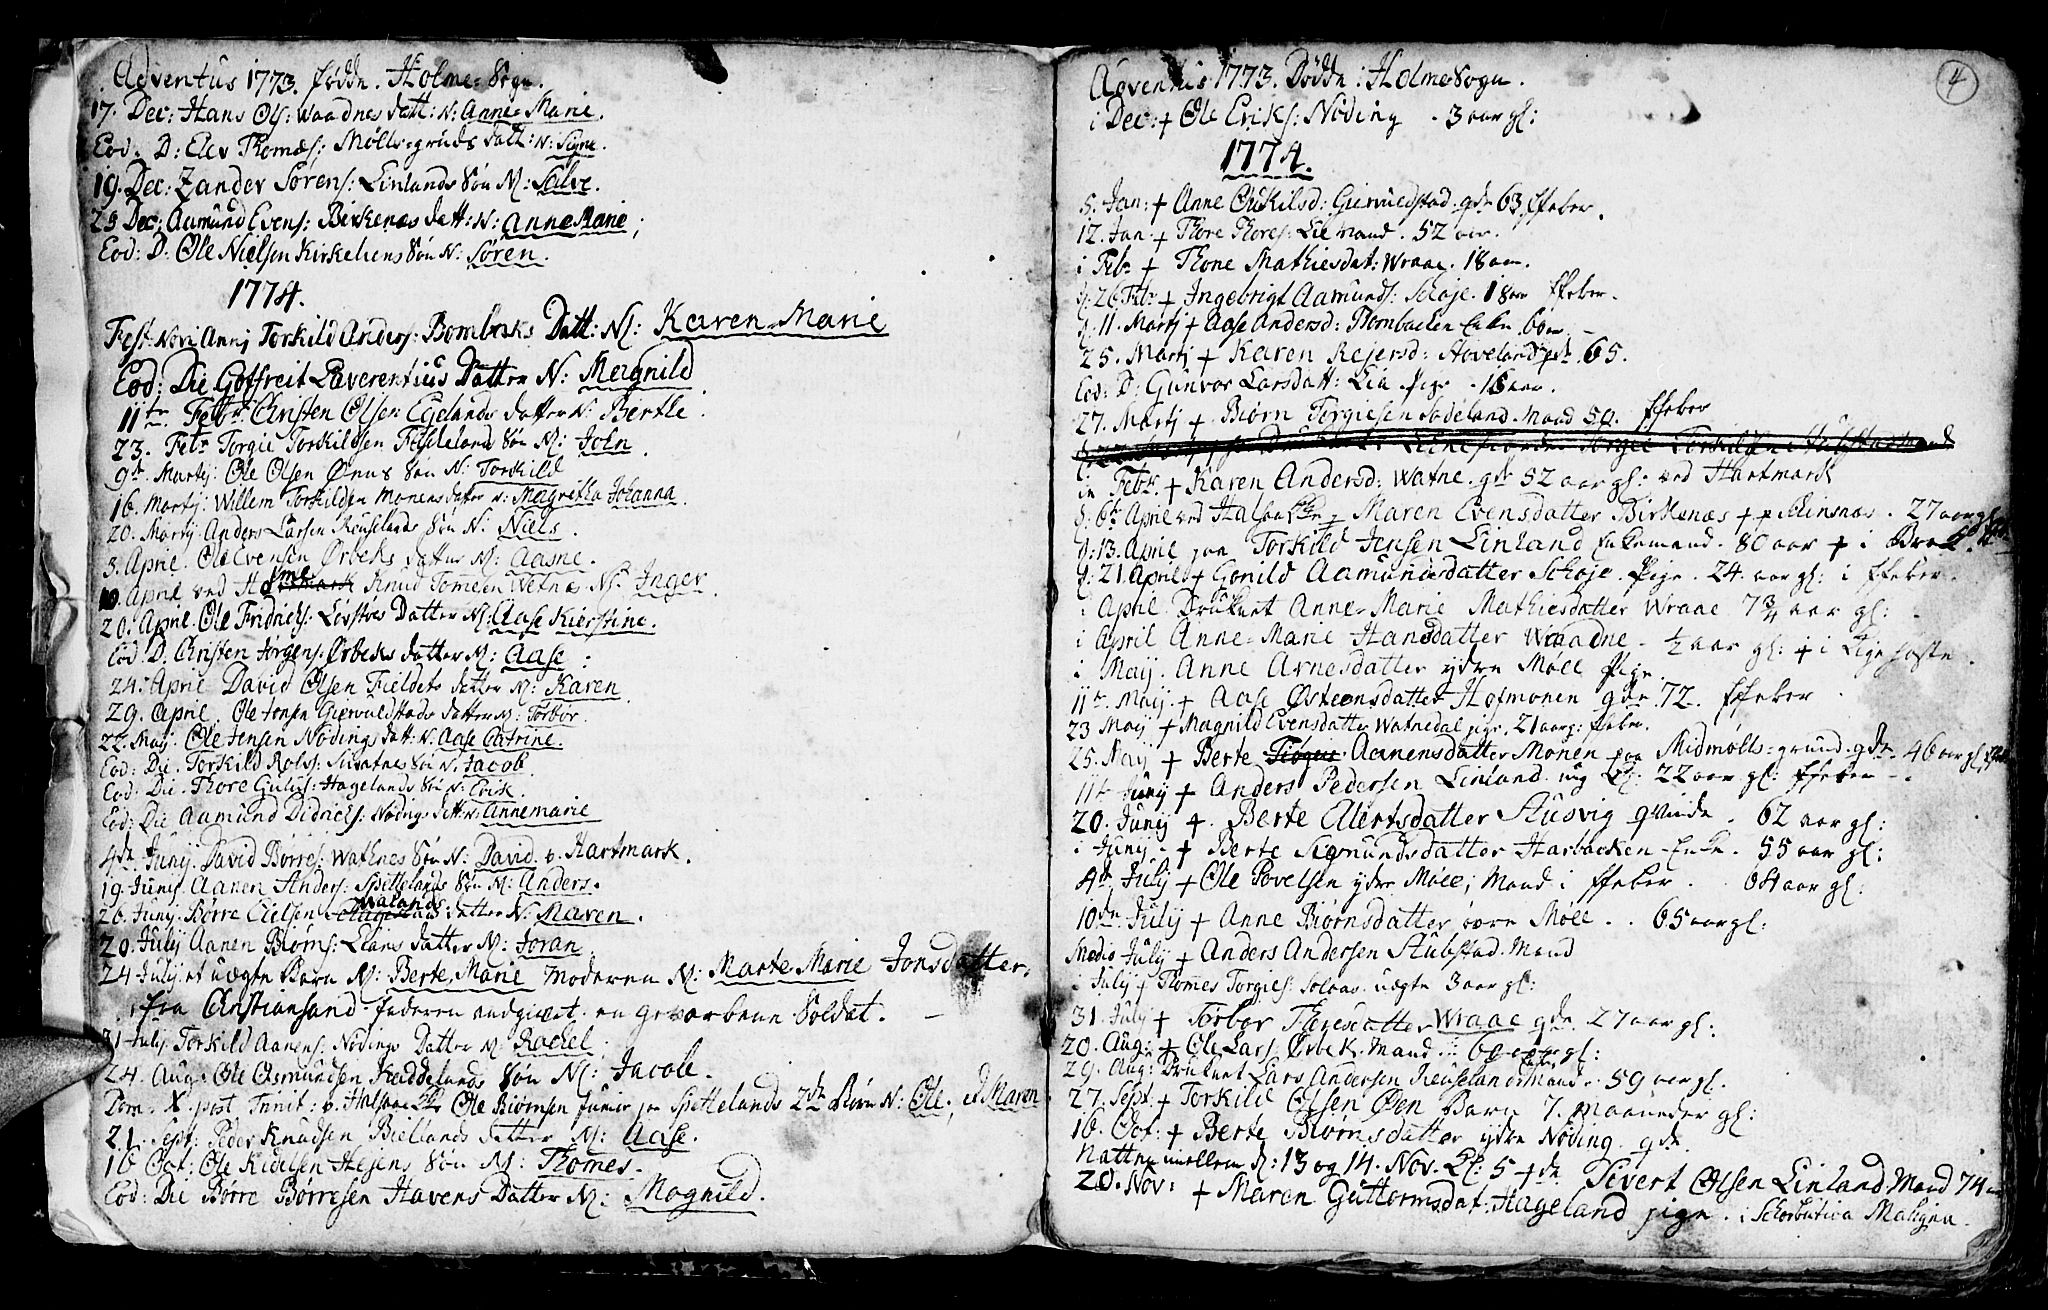 Adventus 1773. fødde. Holme-Sogn.
17. Dec: Hans Ols: Waadnes datt: N: Anne-Marie.
Eod. D: Elev Thomæs: Møllegruds datt: N: Signe.
19. Dec: Zander Sørens: Linlands Søn N: Salve.
23 Dec: Aamund Evens: Birkenæs datt: N: Anne Marie;
Eod: D: Ole Nielsen Kirkeliens Søn N: Søren.
1774.
Fest Novi Annj Torkild Anders: Bombaks Datt: N: Karen-Marie
Eod: Die Gotfreit Laverentius Datter N: Magnild
11te Febr: Christen Olsen Egelands datter N: Berthe.
23. Febr Torgie Torkildsen Fasseland Søn N: John
9de Martij: Ole Olsen Ønns Søn N: Torkild
16. Martij: Willem Torkildsen Monens datter N: Magretha Johanna.
20. Martij Anders Larsen Reuselands Søn N: Niels.
3. April. Ole Evensen Ørbeks datter N: Aasne.
10. April ved Holme Knud Tomesen Vatnes N: Inger.
20. April. Ole Fridrichs: Løvstøes Datter N: Aase Kierstine.
Eod. D. Christen Jørgens: Ørbeks datter N: Aase:
24. April David Olsen Fieldets datter N: Karen
29. April. Ole Jensen Gierwuldstads datter N: Torbør.
22. Maij. Ole Jensen Nødings datt: N: Aase Catrine.
Eod: Die. Torkild Rols: Søn N: Jacob.
Eod: Die. Thore Gulufs: Hagelands Søn N: Erik.
Eod: Die Aamund Didrichs: Nødings datt: N: Annemarie
4de Junij. David Børres: Wathnes Søn N: David. v. Hartmark.
19. Junij Aanen Anders: Spettelands Søn N: Anders.
26. Junij. Børre Elelsen Walands datter N: Maren.
20. Julij Aanen Biørns: Lians datter N: Joran
24 Julij et uægte Barn N: Berte Marie Moderen N: Marte Marie Jonsdatter,
fra Christiansand. faderen audgivet en gevorbene Soldat. —
31 Julij Torkild Aanens: Nødings Datter N: Rachel;
24. Aug: Ole Osmundsen Kaddelands Søn N: Jacob.
Dom. X. post Trinit: v. Halsaa Ole Biørnsen Junior paa Spettelands 2de Børn N: Ole, et Maren
21. Sept: Peder Knudsen Biellands datter N: Aase.
16 Oct: Ole Kidelsen Hejens Søn N: Thomes.
Eod: Die Børre Børresen Havens Datter N: Magnild.
4
Adventus 1773. Døde i Holme Sogn.
i Dec: + Ole Eriks: Nøding. 3 aar gl:
1774.
5. Jan: + Anne Eskilsd: Gierwuldstad. gde 63. ffeber.
12. Jan: + Thore Thores: Lie Mand. 52 aar.
i Febr + Thone Mathiesdat: Wraae. 18 aar.
d: 26 Febr + Ingebrigt Aamunds: Schoje. 18 aar ffeber.
d: 11. Martij + Aase Andersd: Bombacken Enke. 60 aar. —
25. Martij + Karen Rejersd: Hoveland gde. 65.
Eod: D: Gunvor Larsdatt: Lia Pige. 16 aar.
27. Martij + Biørn Torgiesen Sodeland. Mand 50. ffeber
in Febr. + Karen Andersd: Watne. gde 52 aar gl: ved Hartmark
d: 6te April ved Halsaa Maren Evensdatter Birkenæs + Pige. 27 aar gl:
d: 13. April paa Torkild Jensen Linland Enkemand. 80 aar +
d: 21. April + Gonild Aamundsdatter Schoje. Pige. 24. aar gl: i ffeber.
i April Druknet Anne-Marie Mathiesdatter Wraae 7 3/4 aar gl: .
i April Anne-Marie Hansdatter Waadne. 1/2 aar gl: + i Kigehoste.
i Maij. Anne Arnesdatter ydre Møll Pige.
11te Maij. + Aase Østensdatter Hofmonen gde. 72. ffeber
23 Maij + Magnild Evensdatter Watnedal pige. 21 aar: ffeber.
25. Maij + Berte Aanensdatter Monen paa Midmølls-grund. gde. 46 aar gl.
11te Junij + Anders Pedersen Linland ung K: 22 aar gl: ffeber —.
20. Junij +. Berte Alertsdatter Stusvig qvinde. 62 aar gl:
i Junij + Berte Sigmundsdatter Harbacken Enke. 55 aar gl:
4de Julij + Ole Povelsen ydre Møll; Mand i ffeber. 64 aar gl:
10de Julij + Anne Biørnsdatter øvre Møll. . 65 aar gl:
Medio Julij + Anders Andersen Stubstad. Mand
i Julij + Thomes Torgies: Solaas. uægte 3 aar gl:
31. Julij + Torbor Thoresdatter Wraae gde. 27 aar gl:
20. Aug: + Ole Lars: Ørbek. Mand. 60 aar gl:
29. Aug: Druknet Lars Andersen Reuseland Mand. 59 aar gl.
27. Sept: + Torkild Olsen Øen Barn 7. maaneder gl:
16. Oct: + Berte Biørnsdatter ydre Nøding. gde.
Natten mellem d: 13 og 14. Nov. Kl: 5 + de Sivert Olsen Linland. Mand 74
20. Nov: + Maren Guttormsdat: Hageland pige. i Schorbutica Maligna.